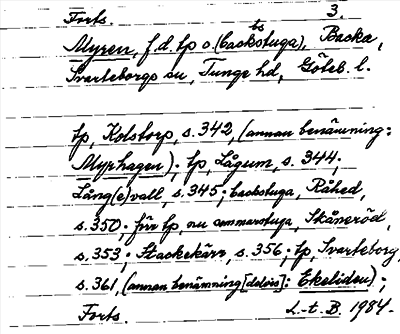 Forts. 3.
Myren, f.d. tp o. (backstuga), Backa,
ts
Svarteborgs sn, Tunge hd, Göteb. l.
tp, Kolstorp, s. 342, (annan benämning:
Myrhagen); tp, Lågum, s. 344;
Lång(e)vall, s. 345; backstuga, Råhed,
s. 350; förr tp, nu sommarstuga, Skåneröd,
s. 353; Stackekärr, s. 356; tp, Svarteborg,
s. 361, (annan benämning [delvis]: Ekeliden);
Forts. L.-t. B. 1984.